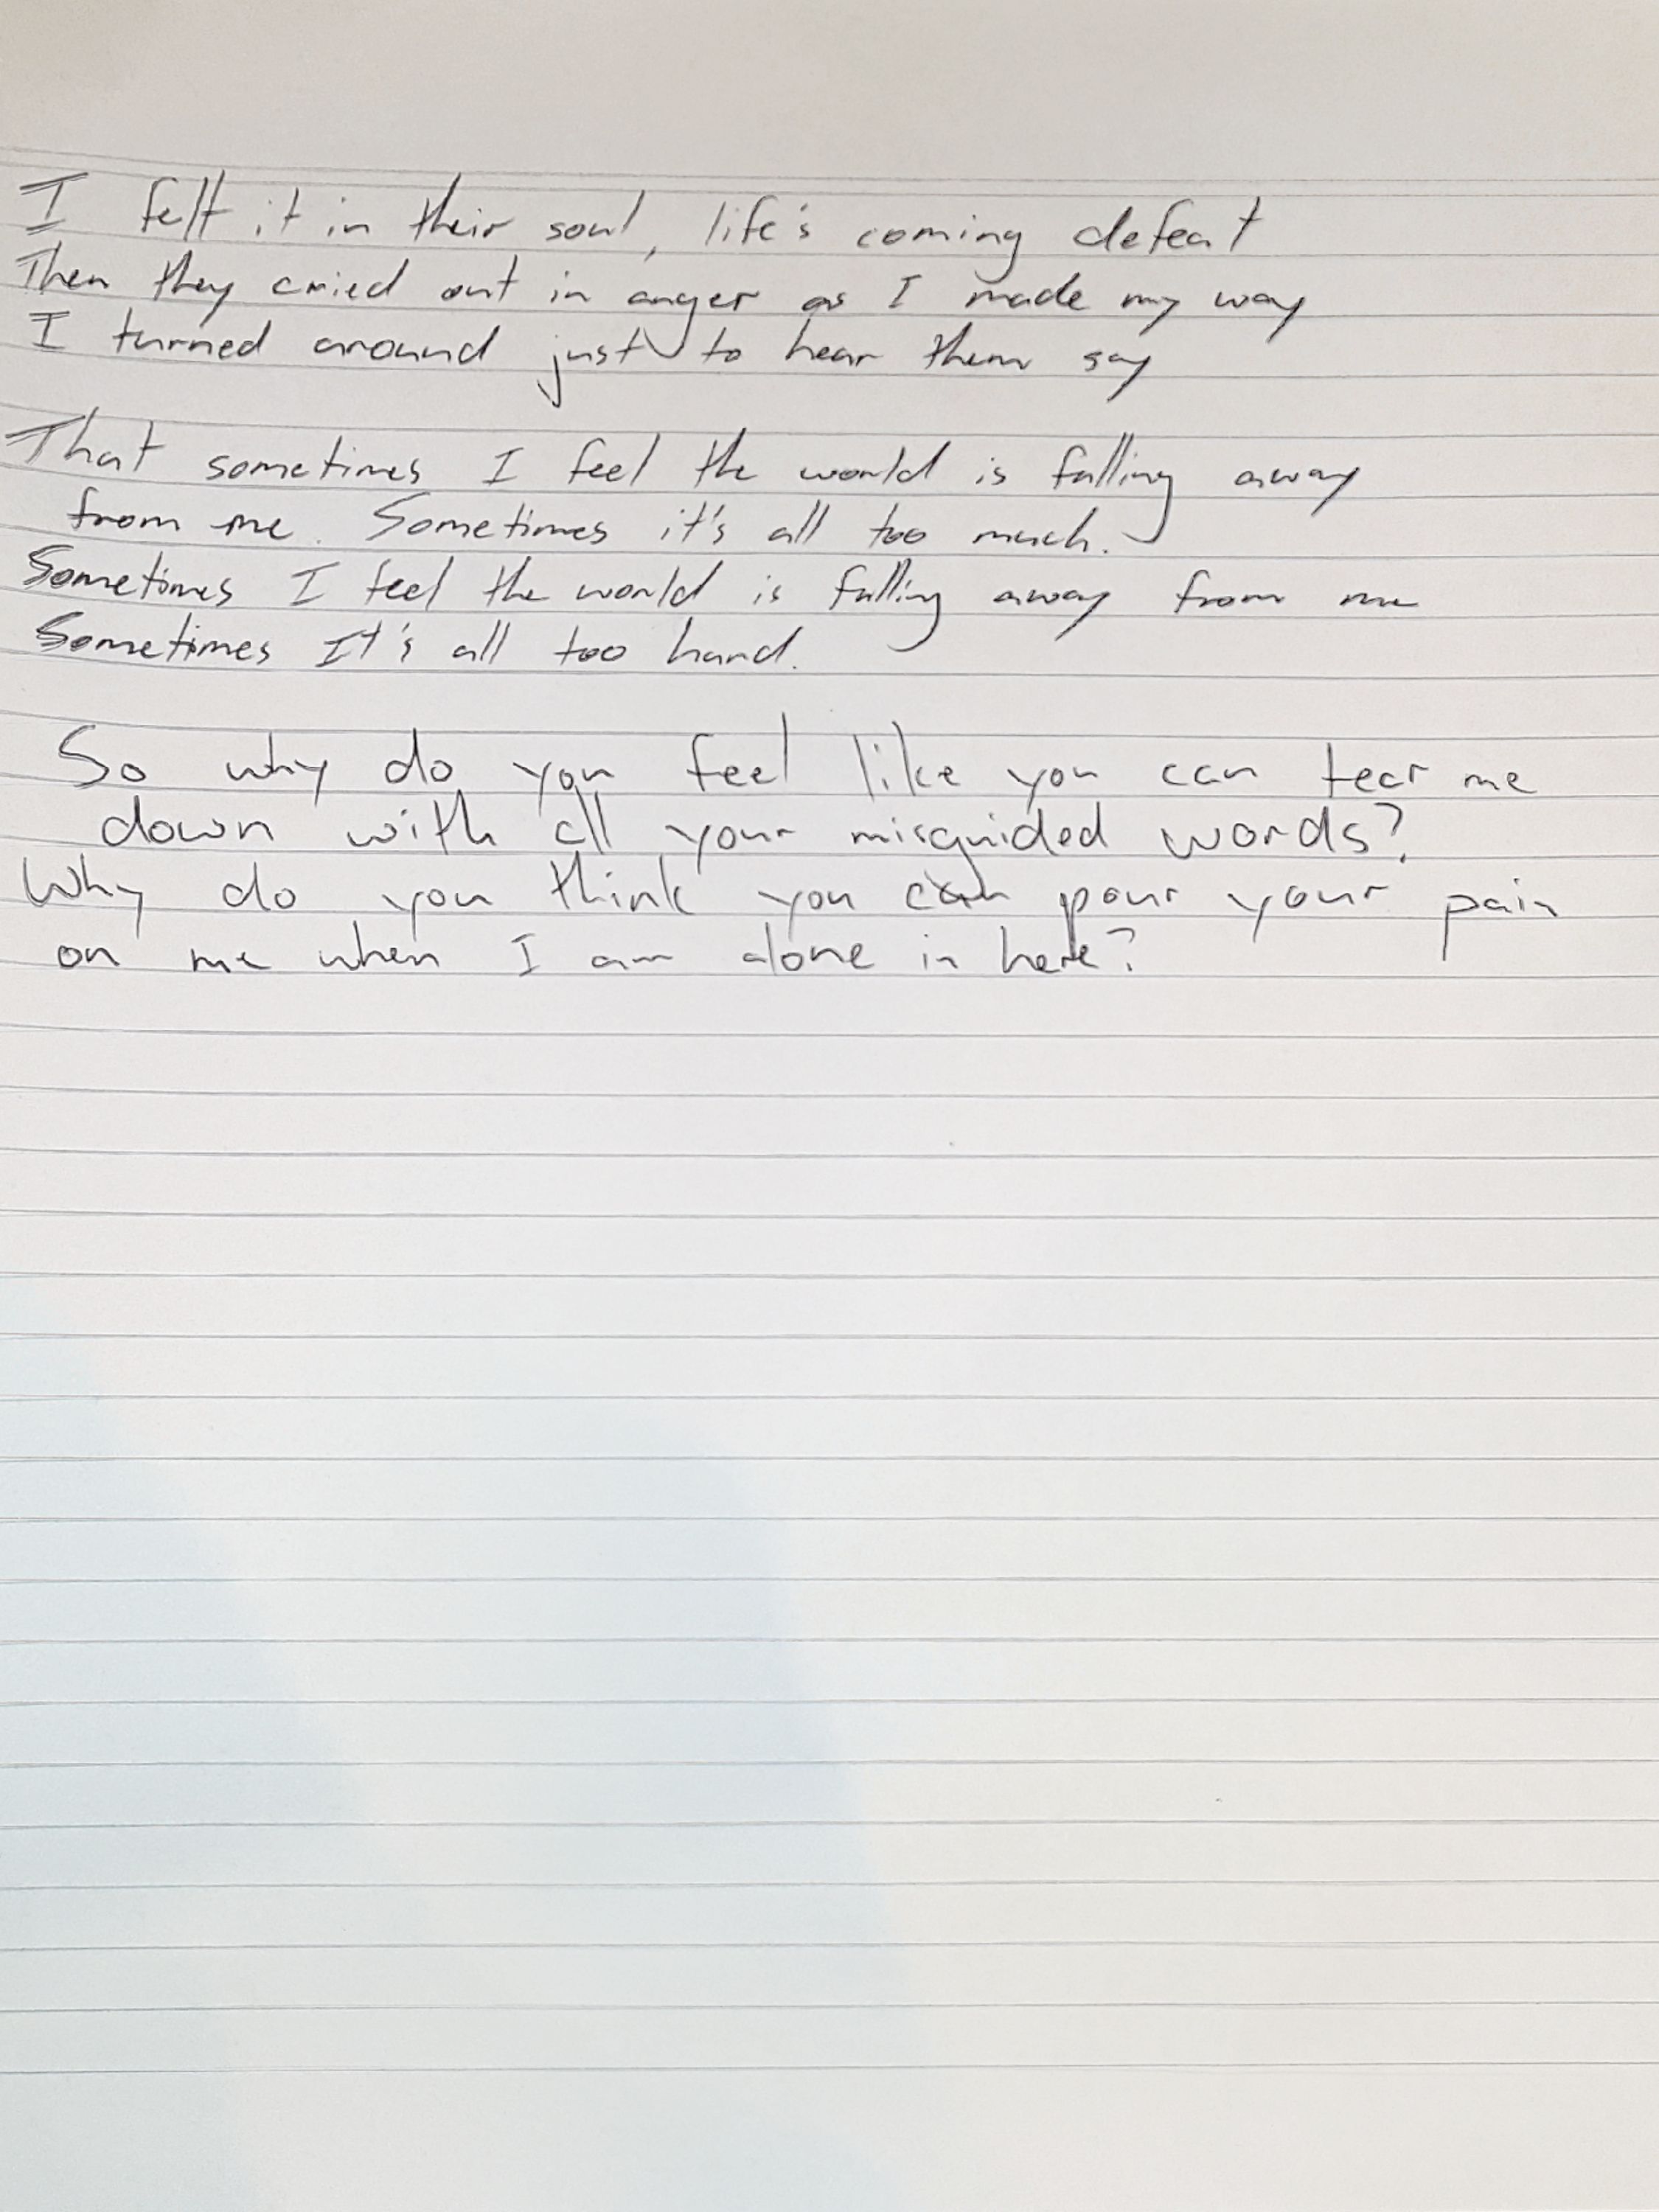 I felt it in their soul, life's coming defeat
Then they cried out in anger as I made my way
I turned around just to hear them say
That sometimes I feel the world is falling away
from me. Sometimes it's all too much.
Sometimes I feel the world is falling away from me
Sometimes It's all too hard.
So why do you feel like you can tear me
down with all your misguided words?
Why do you think you can pour your pain
on me when I am alone in here?